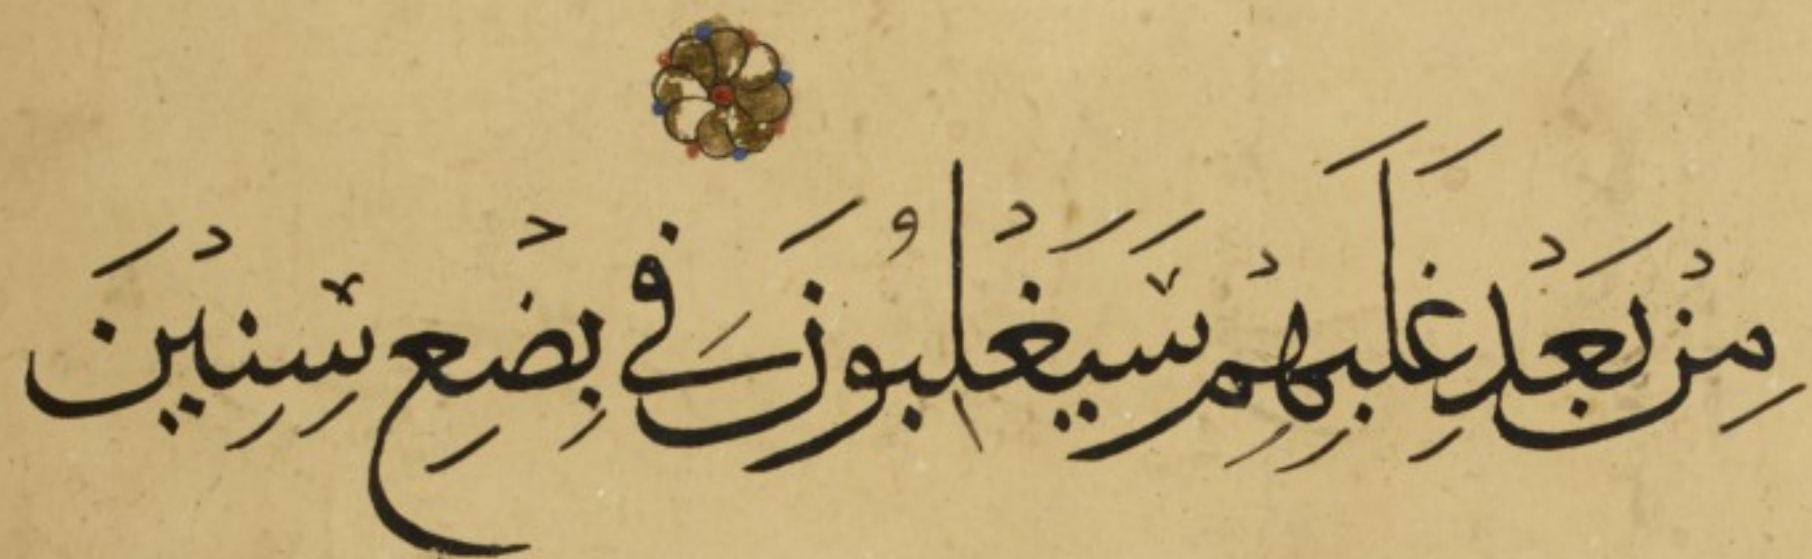 مِنْ بَعْدِ غَلَبِهِمْ سَيَغْلِبُونَ فِي بِضْعِ سِنِيْنَ